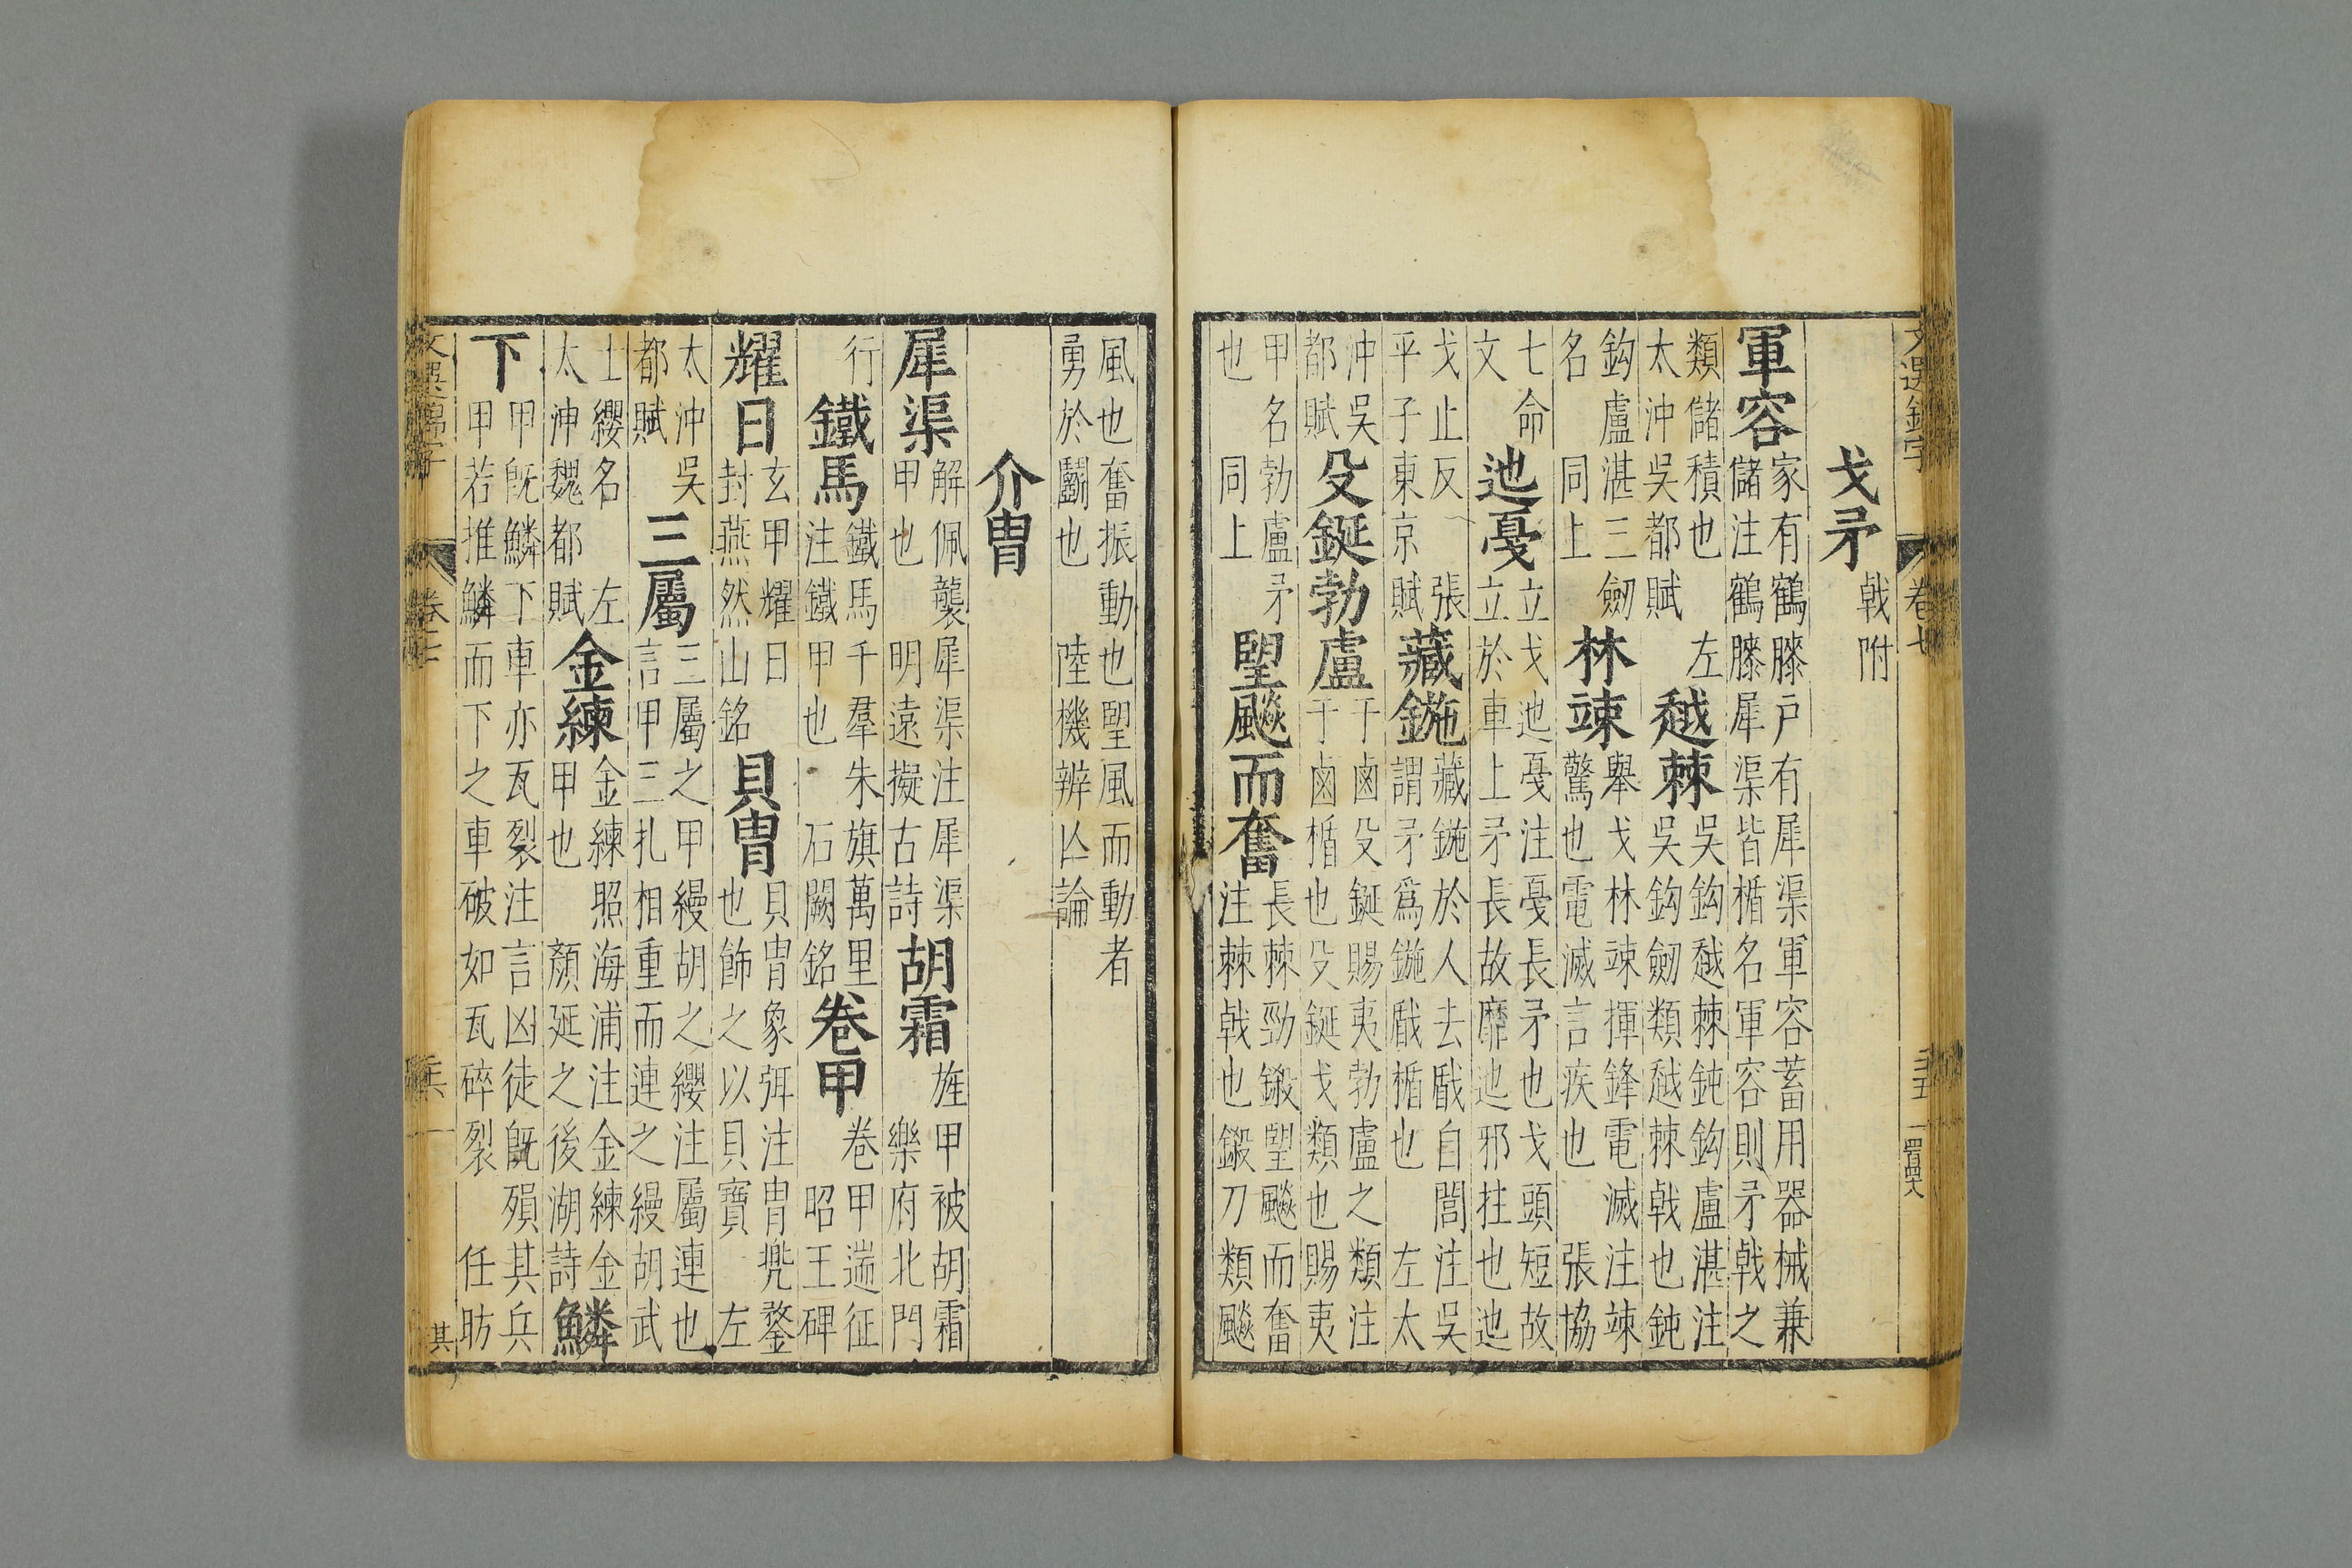 文選錦字 卷七
戈矛 戟附
軍容 家有鶴膝戶有犀渠軍容蓄用器械兼
儲注鶴膝犀渠皆楯名軍容則矛戟之
類儲積也 左
太沖吳都賦 越棘 吳鈎越棘鈍鈎盧湛注
吳鈎劒類越棘戟也鈍
鈎盧湛三劒
名 同上 林竦 舉戈林竦揮鋒電滅注竦
驚也電滅言疾也 張協
七命
文 迆戞 立戈迆戞注戞長矛也戈頭短故
立於車上矛長故靡迆邪拄也迆
戈止反 張
平子東京賦 藏鍦 藏鍦於人去戢自閭注吳
謂矛爲鍦戢楯也 左太
沖吳
都賦 殳鋋勃盧 干鹵殳鋋賜夷勃盧之類注
干鹵楯也殳鋋戈類也賜夷
甲名勃盧矛
也 同上 望飇而奮 長棘勁鎩望飇而奮
注棘戟也鎩刀類飇
風也奮振動也望風而動者
勇於鬭也 陸機辨亡論
介冑
犀渠 解佩襲犀渠注犀渠
甲也 明遠擬古詩 胡霜 旌甲被胡霜
樂府北門
行 鐵馬 鐵馬千羣朱旗萬里
注鐵甲也 石闕銘 卷甲 卷甲遄征
昭王碑
耀日 玄甲耀日
封燕然山銘 貝冑 貝冑象弭注冑兜鍪
也飾之以貝寶 左
太沖吳
都賦 三屬 三屬之甲縵胡之纓注屬連也
言甲三扎相重而連之縵胡武
士纓名 左
太沖魏都賦 金練 金練照海浦注金練金
甲也 顏延之後湖詩 鱗
下 甲旣鱗下車亦瓦裂注言凶徒旣殞其兵
甲若推鱗而下之車破如瓦碎裂 任昉
文選錦字 卷七 其